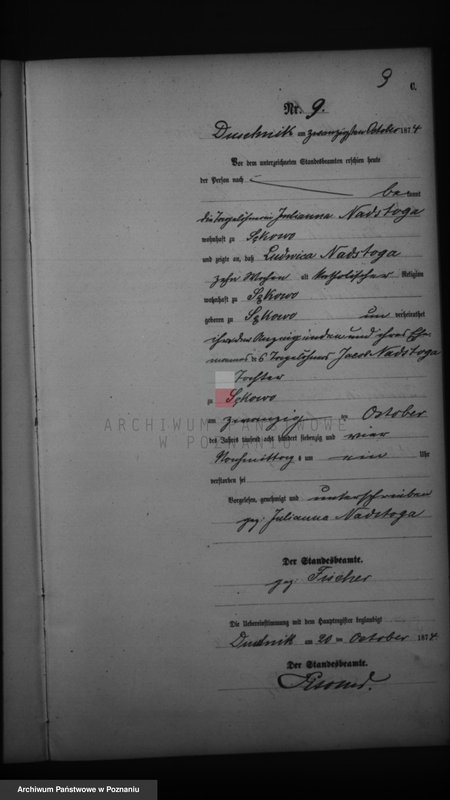 9
C.
Nr. 9.
Duschnik am zwanzigsten October 1874
Vor dem unterzeichneten Standesbeamten erschien heute
der Person nach
be kannt
die Tagelöhnerin Julianna Nadstoga
wohnhaft zu Sękowo
und zeigte an, daß Ludwica Nadstoga
zehn Wochen alt katholischer Religion
wohnhaft zu Sękowo
geboren zu Sękowo un verheirathet
ihrer der Anzeigenden und ihres Ehe-
mannes des Tagelöhners Jacob Nadstoga
Tochter
zu Sękowo
am zwanzig ten October
des Jahres tausend acht hundert siebenzig und vier
Nachmittag s um ein Uhr
verstorben sei
Vorgelesen, genehmigt und unterschrieben
gez: Julianna Nadstoga
Der Standesbeamte.
gez: Fischer
Die Uebereinstimmung mit dem Hauptregister beglaubigt
Duschnik am 20 ten October 1874
Der Standesbeamte.
ARCHIWUM PAŃSTWOWE
W POZNANIU
Archiwum Państwowe w Poznaniu